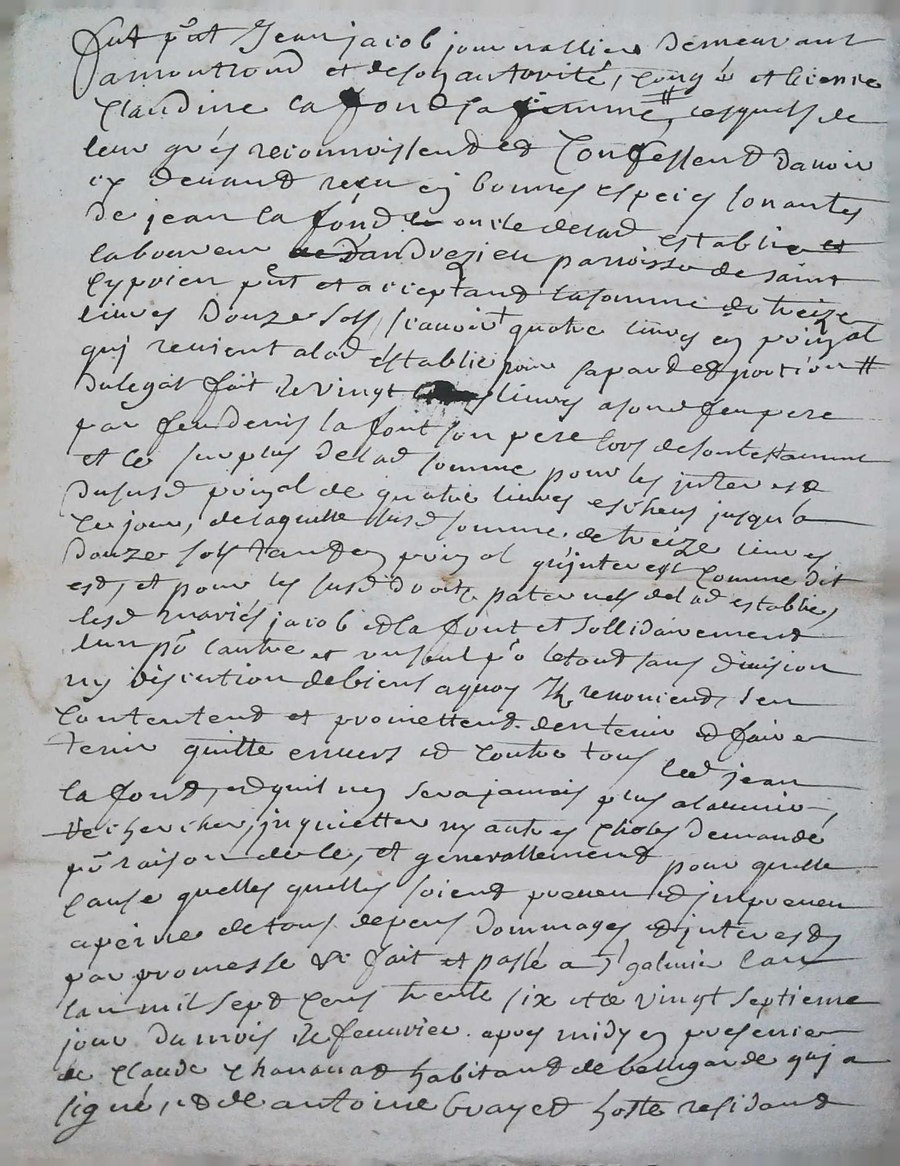 fut p̃nt Jean jacob journallier demeurant
amontrond et desonautorité, congé et licence
Claudine la fond sa femme, lesquels de
leur grés reconnoissend et Confessend davoir
cy devand reçu en bonnes espeices sonantes
de jean la fond oncle delad establie et
laboureur dandrezieu parroisse de saint
Cyprien p̃nt et acceptand lasomme de treize
livres douze sols scavoir quatre livres en prinpal
quj revient alad establie pour sapard et portion
dulegat fait de vingt livres asond feu pere
par feu denis la font son pere lors desontestament
et le surplus delad somme pour les jnterest
dususd prinpal de quatre livres escheus jusqu'a
Ce jour, delaquelle susd somme de treize livres
douze sols tanden prinpal qu'jnterest Comme dit
est, et pour les susd droits paternels delad establie,
lesd mariés jacob et la font et sollidairement
lun pr̃ lautre et un seul pr̃ letout sans division
ny discution debiens aquoy Ils renoncend, sen
Contentend et promettend dentenir et faire
tenir quitte envers et Contre tous led jean
la fond, et quil ny sera jamais plus alavenir
rechercher, jnquietter ny autres choses demandé
pr̃ raison dece, et generallement pour quelle
Cause quelles quelles soiend preveu et jnpreveu
apeine detous depens dommages et jnterests
par promesse &c fait et passé a St galmier
lan mil sept Cens trente six et le vingt septieme
jour du mois de fevrier apres midy en presence
de Claude Chanavad habitand de bellegarde quj a
signé, et de antoine Guayet hoste residand